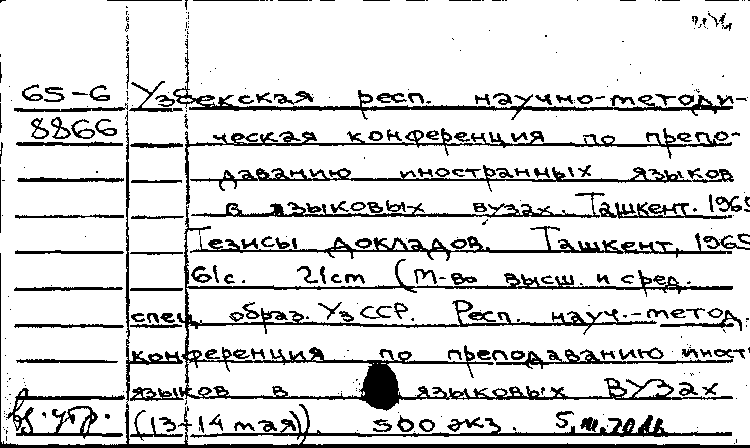 65-6 Узбекская респ. научно-методи-
8866 ческая конференция по препо-
даванию иностранных языков
в языковых вузах. Ташкент. 1965
Тезисы докладов. Ташкент, 1965
61с. 21cm (М-во высш. и сред.
спец. образ. УзССР. Респ. науч.-метод.
конференция по преподаванию иност
языков в языковых ВУЗах
(13-14 мая)). 500 экз.